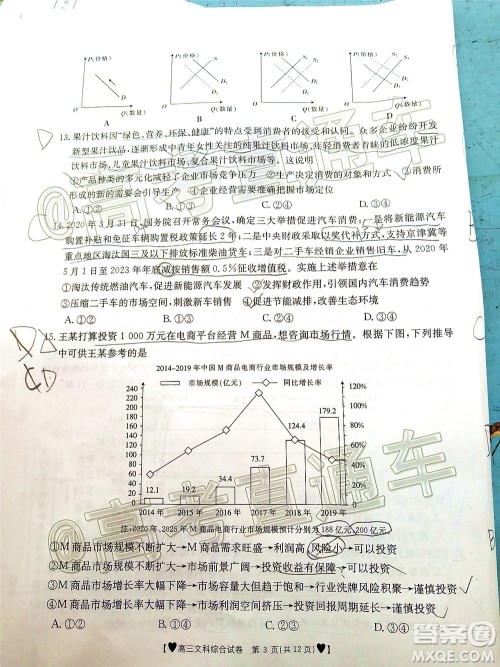 P(价格) P(价格) P(价格) P(价格)
D Q(数量) D₁ D₂ Q(数量) D₂ D₁ Q(数量) D₁ Q(数量)
A B C D
13.果汁饮料因“绿色、营养、环保、健康”的特点受到消费者的青睐。众多饮料企业开发
新型果汁饮品,逐渐形成中青年女性关注的果汁饮料市场、年轻消费者青睐的低浓度果汁
饮料市场、儿童果汁饮料市场、复合果汁饮料市场等。这表明
①产品种类的多元化减轻了企业市场竞争压力 ②消费为生产创造出消费的对象和动力
③生产者更加注重市场的细分和消费的对象 ④消费
所形成的新的需要会引导生产
A.①② B.①③ C.②④ D.③④
14.2020年3月31日,国务院召开常务会议,确定三大举措促进汽车消费:一是将新能源汽车
购置补贴和免征车辆购置税政策延长2年;二是中央财政采取以奖代补方式,支持京津冀等
重点地区淘汰国三及以下排放标准柴油货车;三是对二手车经销企业销售旧车,从2020年
5月1日至2023年年底减按销售额0.5%征收增值税。
①淘汰传统燃油汽车,促进新能源汽车消费
③压缩二手车的市场空间,刺激新车销售
A.①② B.①③ C.②④ D.③④
15.王某打算投资1 000万元在电商平台经营M商品,想咨询市场行情。根据下图,下列推导
中可供王某参考的是
2014-2019年中国M商品电商行业市场规模及增长率
市场规模(亿元) 同比增长率
200 180 160 140 120 100 80 60 40 20 0
12.1 19.2 34.4 73.7 124.4 179.2
140% 120% 100% 80% 60% 40% 20% 0
2014年 2015年 2016年 2017年 2018年 2019年
注:2020年、2025年M商品电商行业市场规模预计分别为188亿元、200亿元。
①M商品市场规模不断扩大→M商品需求旺盛→利润高,风险小→可以投资
②M商品市场规模不断扩大→市场前景广阔→投资收益有保障→可以投资
③M商品市场增长率大幅下降→市场容量大但趋于饱和→行业洗牌风险积聚→谨慎投资
④M商品市场增长率大幅下降→市场利润空间挤压→投资回报周期延长→谨慎投资
A.①② B.①③ C.②④ D.③④
♥高三文科综合试卷 第3页(共12页)♥
@高考直通车
@高考直通车
答案圈
MXQE.COM